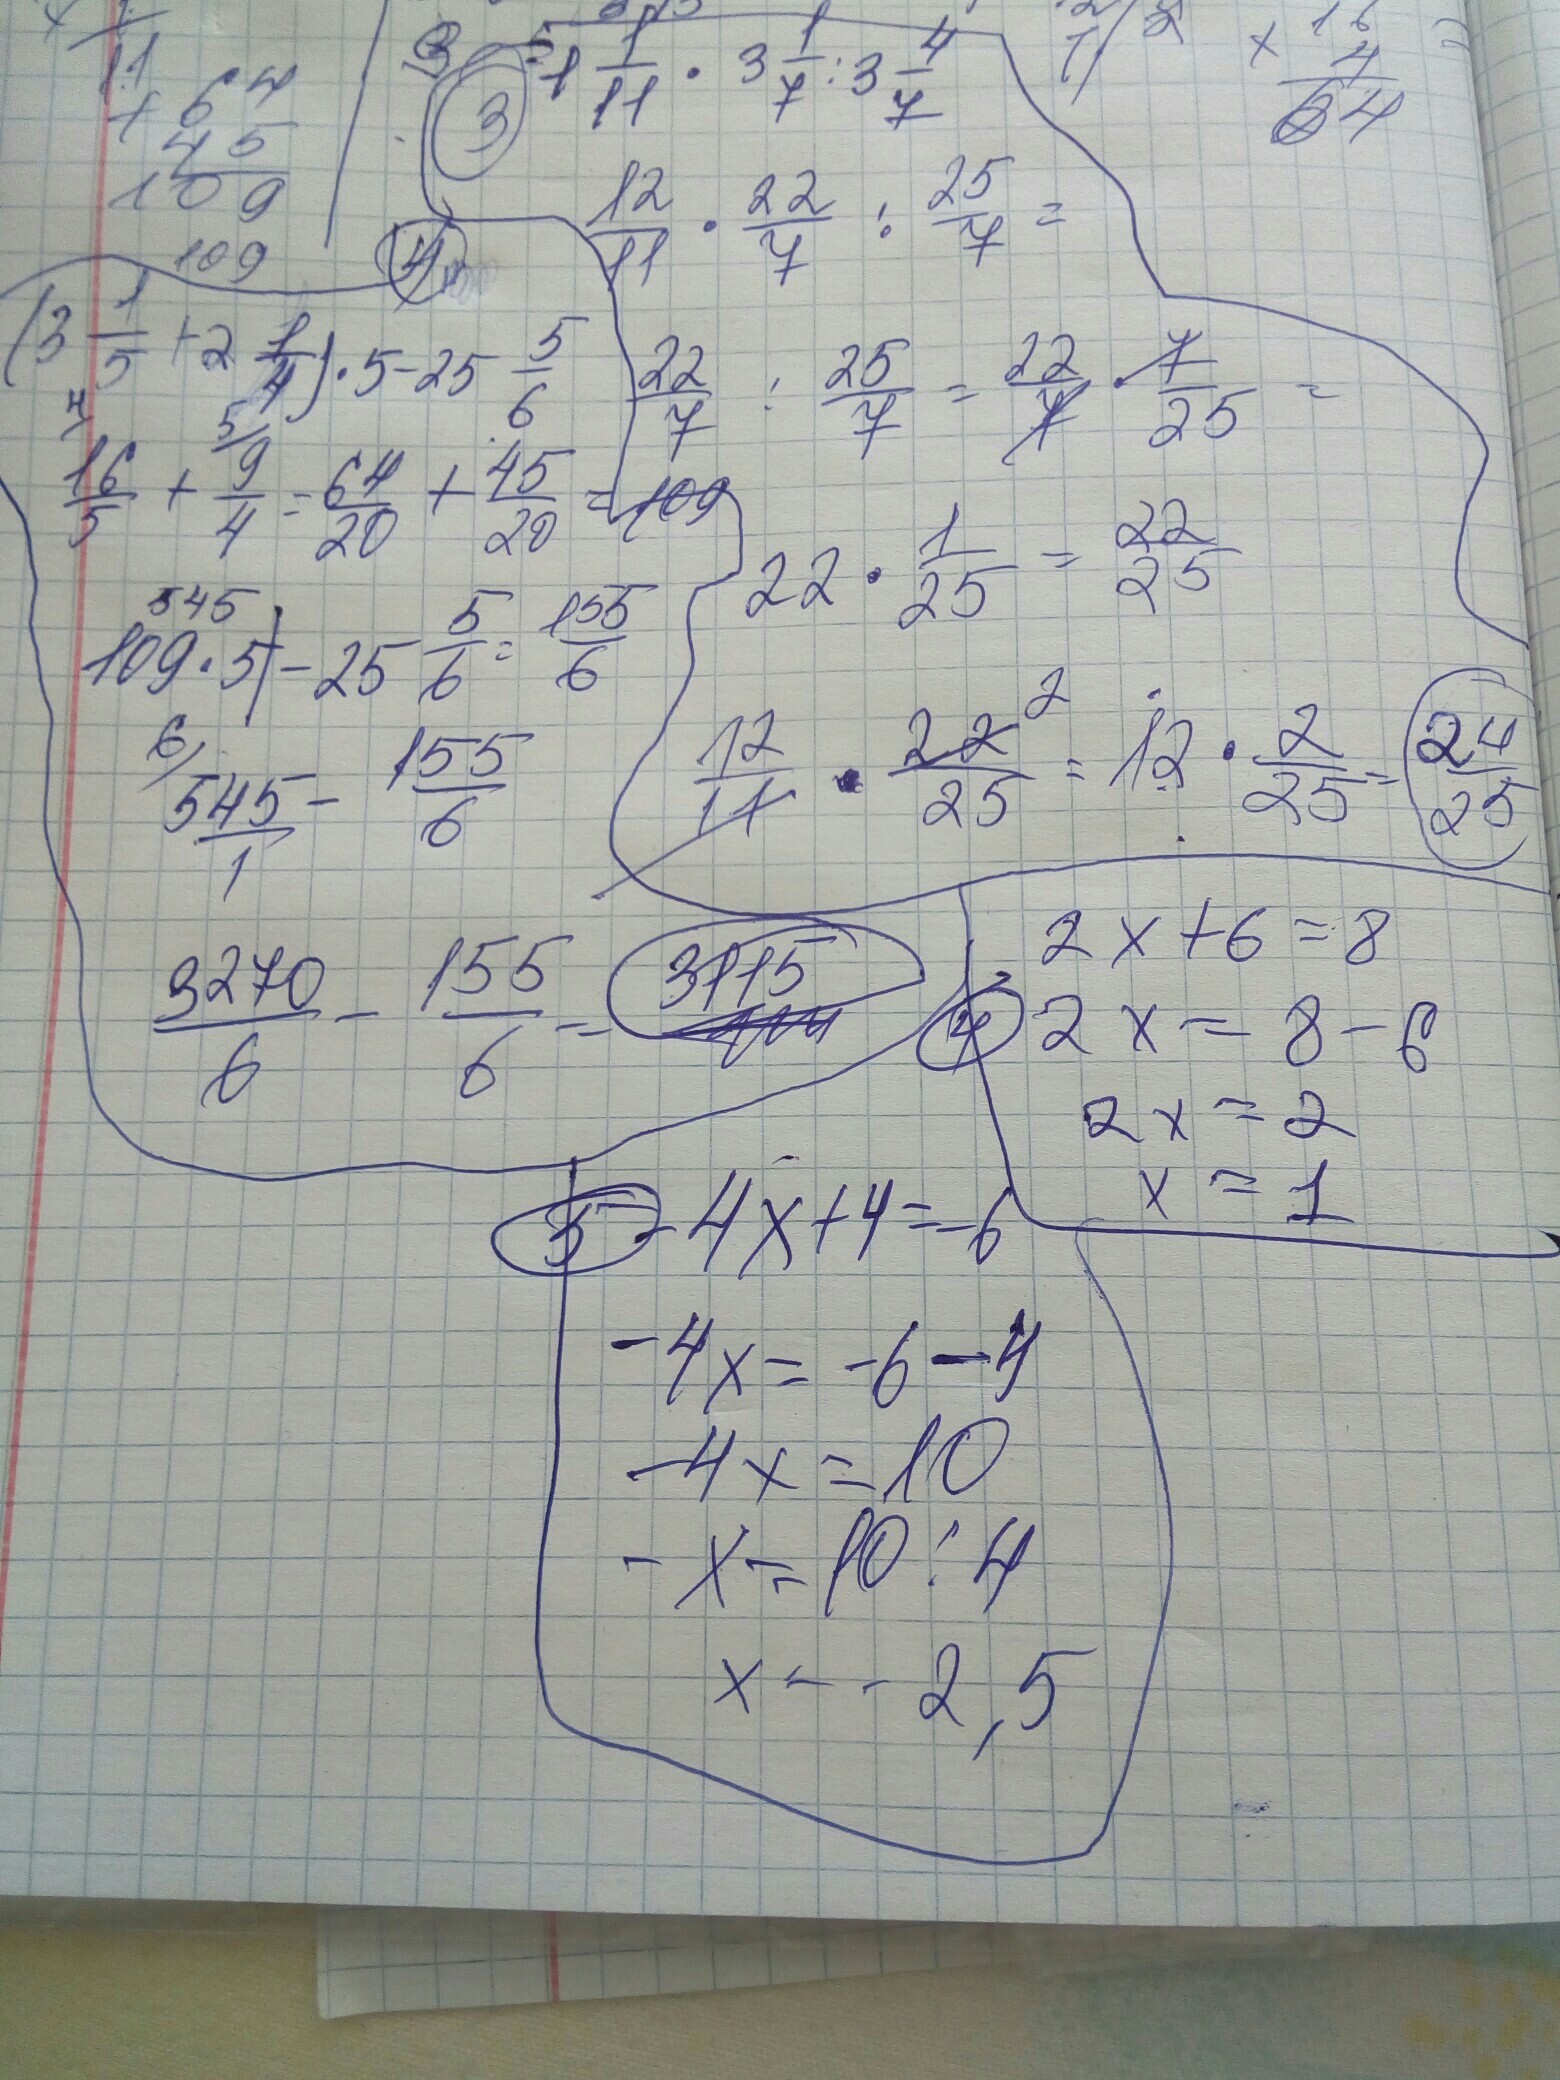 11
+ 64
45
109
109
× 16
4
64
3 1 1/11 · 3 1/7 : 3 4/7
12/11 · 22/7 : 25/7 =
22/7 : 25/7 = 22/7 · 7/25 =
22 · 1/25 = 22/25
12/11 · 22/25 2 = 12 · 2/25 = 24/25
4
(3 1/5 + 2 1/4) · 5 - 25 5/6
4 5
16/5 + 9/4 = 64/20 + 45/20 = 109
545
109 · 5 - 25 5/6 = 155/6
6/
545/1 - 155/6
3270/6 - 155/6 = 3115
4 2x + 6 = 8
2x = 8 - 6
2x = 2
x = 1
5 - 4x + 4 = -6
-4x = -6 - 4
-4x = 10
-x = 10 : 4
x = -2,5